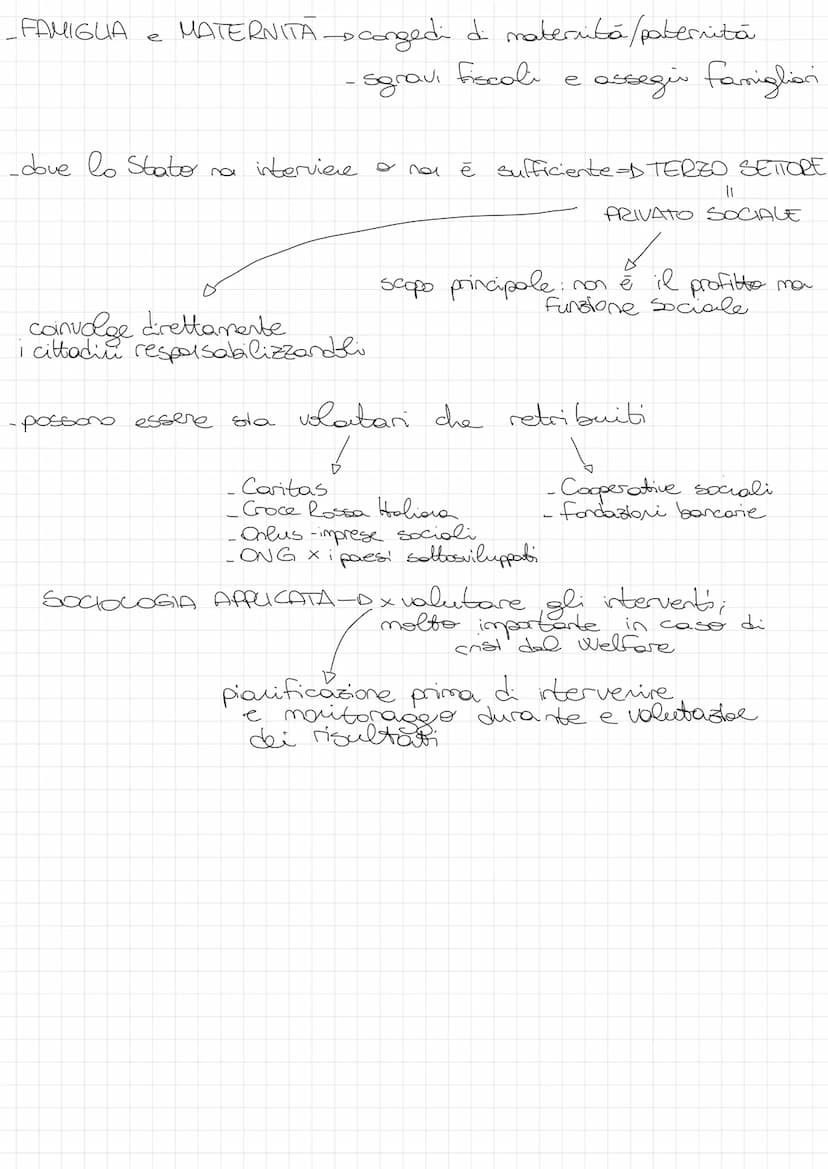 - FAMIGLIA e MATERNITÀ → congedi di maternità/paternità
- sgravi fiscali e assegni famigliari
- dove lo Stato non interviene o non è sufficiente ⇒ TERZO SETTORE
=
PRIVATO SOCIALE
scopo principale: non è il profitto ma
funzione sociale
coinvolge direttamente
i cittadini responsabilizzandoli
- possono essere sia volontari che retribuiti
- Caritas
- Croce Rossa Italiana
- Onlus - imprese sociali
- ONG x i paesi sottosviluppati
- Cooperative sociali
- Fondazioni bancarie
SOCIOLOGIA APPLICATA → x valutare gli interventi;
molto importante in caso di
crisi del Welfare
pianificazione prima di intervenire
e monitoraggio durante e valutazione
dei risultati